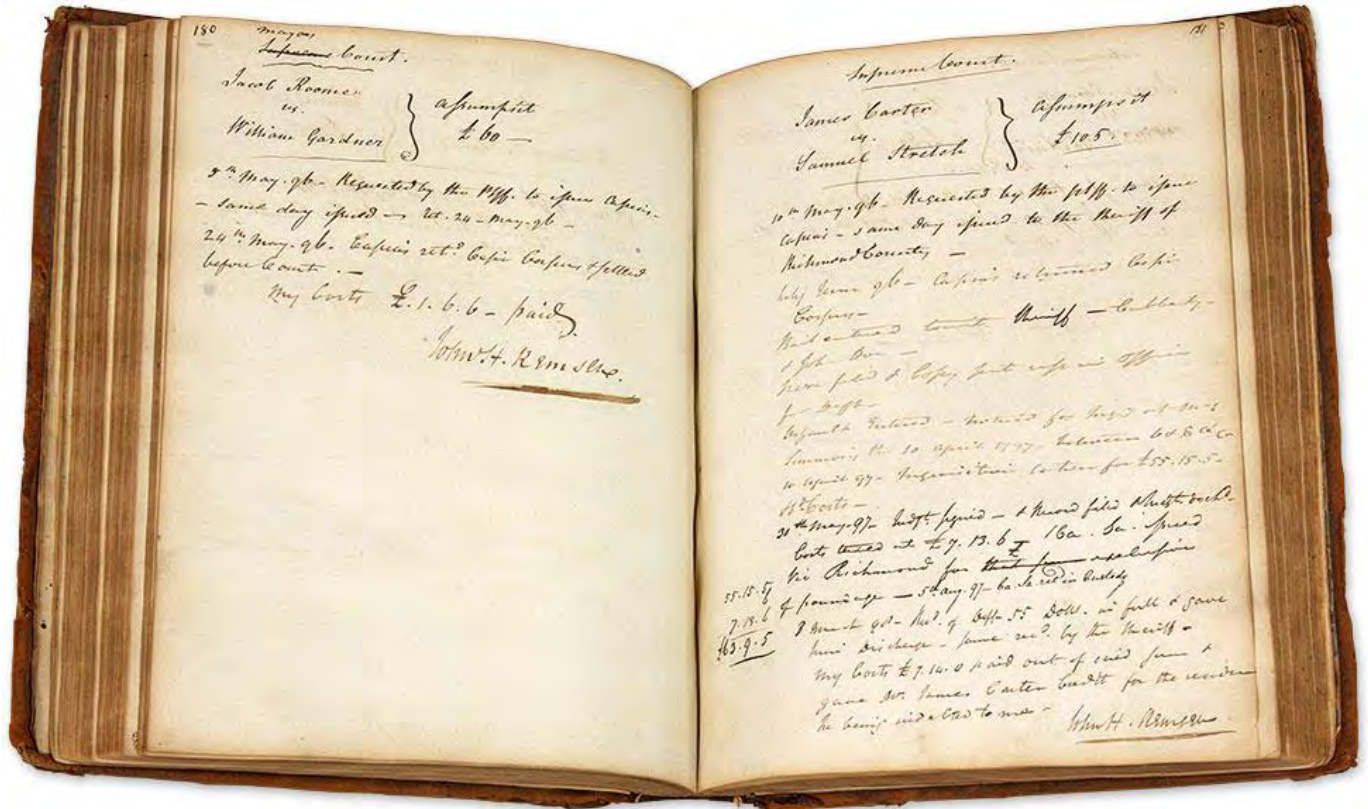 180
Mayors
Supreme Court.
Jacob Roome
vs.
William Gardner
assumpsit
£60 —
9th May. 96 - Requested by the Plff. to issue Capias -
- same day issued - ret. 24 - May. 96 -
24th May. 96. Capias retd. Cepi Corpus & settled
before Court. -
My Costs £.1.6.6 - paid
John H. Remsen.
181
Supreme Court.
James Carter
vs.
Samuel Stretch
assumpsit
£105.
10th May. 96 - Requested by the plff. to issue
Capias - same day issued to the Sheriff of
Richmond County -
July Term 96 - Capias returned Cepi
Corpus -
Bail entered Sheriff -
& John Doe -
filed & Copy
Deft -
Default Entered -
10 April 1797, between 6 & 8
10 April 97 - Inquisition taken for £55.15.5 -
Costs -
May. 97 - Judgt. signed - & Record filed
Costs taxed at £7.13.6 - Ca. Sa. issued
Richmond for exclusive
of poundage - 5th Aug. 97 - Ca. Sa. ret. in Custody
55.15.5
7.13.6
£63.9.5
8 March 98 - Recd. of Deft. 55 Dolls. in full & gave
him Discharge - same recd. by the Sheriff -
My Costs £7.14.0 paid out of said sum &
gave Mr. James Carter Credit for the residue
he being indebted to me -
John H. Remsen